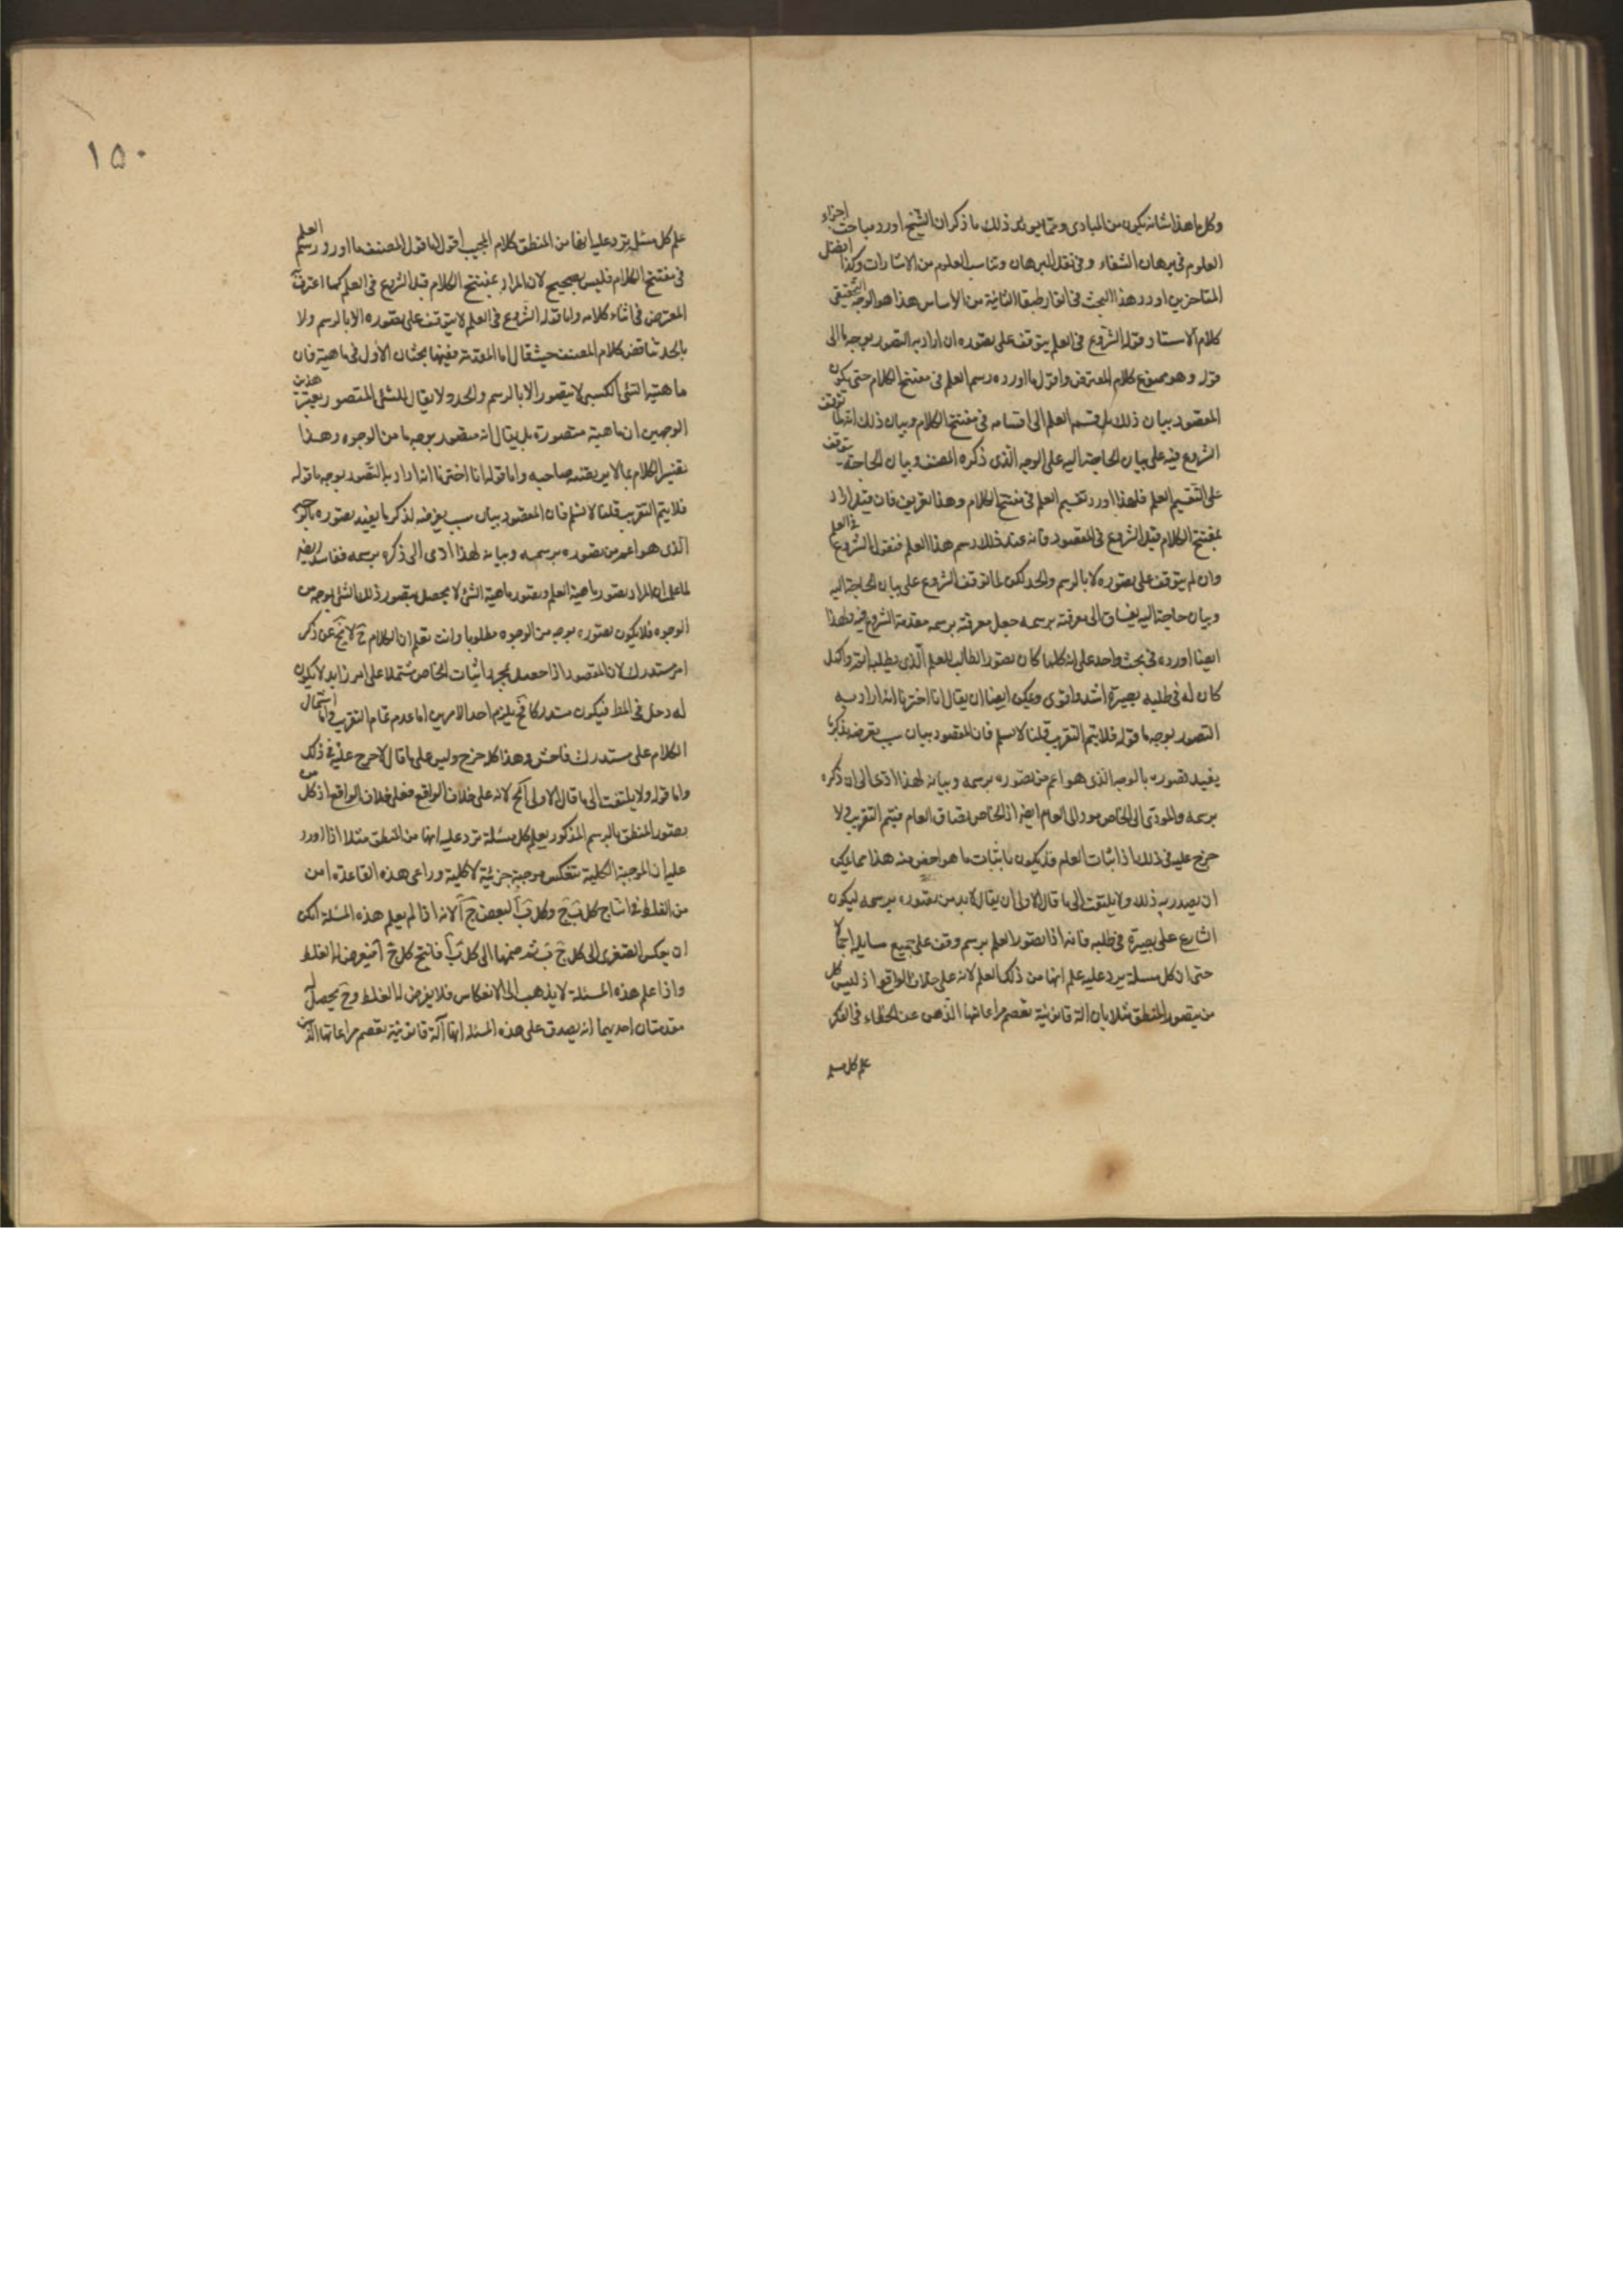 وكل ما هذا شانه يكون من المبادى ومما يويد ذلك ما ذكر ان الشيخ اورد مباحث اجزاء
العلوم فى برهان الشفاء وفى نقل البرهان وتناسب العلوم من الاشارات وكذا افضل
المتاخرين اورد هذا البحث فى المنطق الثانية من الاساس هذا هو الوجه التحقيقى
كلام الاستاد قوله الشروع فى العلم يتوقف على تصوره ان اراد به التصور بوجه ما الى
قوله وهو ممنوع كلام المعترض واقول ما اورده رسم العلم فى مفتتح الكلام حتى يكون
المقصود بيان ذلك بل قسم العلم الى اقسامه فى مفتتح الكلام وبيان ذلك انه لما توقف
الشروع فيه على بيان الحاجة اليه على الوجه الذى ذكره المصنف وبيان الحاجة يتوقف
على التقسيم العلم فلهذا اورد تقسيم العلم فى مفتتح الكلام وهذا لغرض فان قيل اراد
بمفتتح الكلام قبل الشروع فى المقصود فانه عند ذلك رسم هذا العلم فنقول الشروع فى العلم
وان لم يتوقف على تصوره لا بالرسم والحد لكن لما توقف الشروع على بيان الحاجة اليه
وبيان حاجة اليه ينساق الى معرفته برسمه جعل معرفته برسمه مقدمة الشروع فيه ولهذا
ايضا اورده فى بحث واحد على انه كلما كان تصور الطالب للعلم الذى يطلبه اتم واكمل
كان له فى طلبه بصيرة اشد واقوى ويمكن ايضا ان يقال انا اخترنا انه اراد به
التصور بوجه ما قوله فلا يتم التقريب قلنا لا نسلم فان المقصود بيان سبب تعرضه بذكر ما
يفيد تصوره بالوجه الذى هو اعم من تصوره برسمه وبيانه لهذا ادى الى ان ذكره
برسمه والمودى الى الخاص مود الى العام ايضا اذ الخاص يصاق العام فيتم التقريب ولا
حرج عليه فى ذلك اذا اثبات العلم قد يكون باثبات ما هو اخص منه هذا مما يمكن
ان يصدر به ذلك ولا يلتفت الى ما قال الاولى ان يقال لا بد من تصوره برسمه ليكون
الشارع على بصيرة فى طلبه فانه اذا تصور العلم برسم وقف على جميع مسايله اجمالا
حتى ان كل مسئلة يرد عليه علم انها من ذلك العلم لانه على خلاف الواقع اذ ليس كل
من يتصور المنطق مثلا بان آلة قانونية تعصم مراعاتها الذهن عن الخطاء فى الفكر
علم كل مسئلة
١٥٠
علم كل مسئلة ترد عليه انها من المنطق كلام المجيب اقول اما قول المصنف ما اورد رسم العلم
فى مفتتح الكلام فليس بصحيح لان المراد بمفتتح الكلام قبل الشروع فى العلم كما اعترف
المعترض فى اثناء كلامه واما قوله الشروع فى العلم لا يتوقف على تصوره الا بالرسم ولا
بالحد تناقض كلام المصنف حيث قال اما المقدمة ففيها بحثان الاول فى ماهيته فان
ماهية الشئ الكسبى لا يتصور الا بالرسم والحد ولا يقال للشئ المتصور بغير هذين
الوجهين ان ماهيته متصورة بل يقال انه متصور بوجه ما من الوجوه وهذا
تفسير الكلام بما لا يرتضيه صاحبه واما قوله انا اخترنا انه اراد به التصور بوجه ما قوله
فلا يتم التقريب قلنا لا نسلم فان المقصود بيان سبب تعرضه لذكر ما يفيد تصوره بالوجه
الذى هو اعم من تصوره برسمه وبيانه لهذا ادى الى ذكره برسمه ففاسد ايضا
لما علم ان المراد بتصور ماهية العلم وتصور ماهية الشئ لا يحصل بتصور ذلك الشئ بوجه من
الوجوه فلا يكون تصوره بوجه من الوجوه مطلوبا وانت تعلم ان الكلام ح لا يخ عن ذكر
امر مستدرك لان المقصود اذا حصل بمجرد اثبات الخاص مشتملا على امر زايد لا يكون
له دخل فى المط فيكون مستدركا فح يلزم احد الامرين اما عدم تمام التقريب واما اشتمال
الكلام على مستدرك فاحش وهذا كله حرج وليس على ما قال لا حرج عليه فى ذلك
واما قوله ولا يلتفت الى ما قال الاولى الخ لانه على خلاف الواقع فعلى خلاف الواقع اذ كل من
يصور المنطق بالرسم المذكور يعلم كل مسئلة ترد عليه انها من المنطق مثلا اذا اورد
عليه ان الموجبة الكلية تنعكس موجبة جزئية لا كلية وراعى هذه القاعدة امن
من الغلط فى انتاج كل ب ج وكل ب ا لبعض ج ا لانه اذا لم يعلم هذه المسئلة امكن
ان يعكس الصغرى الى كل ج ب ثم ضمها الى كل ب ا فانتج كل ج ا فيعرض له الغلط
واذا علم هذه المسئلة لا يذهب الى الانعكاس فلا يعرض له الغلط وح يحصل له
مقدمتان احديهما انه يصدق على هذه المسئلة انها آلة قانونية تعصم مراعاتها الذهن